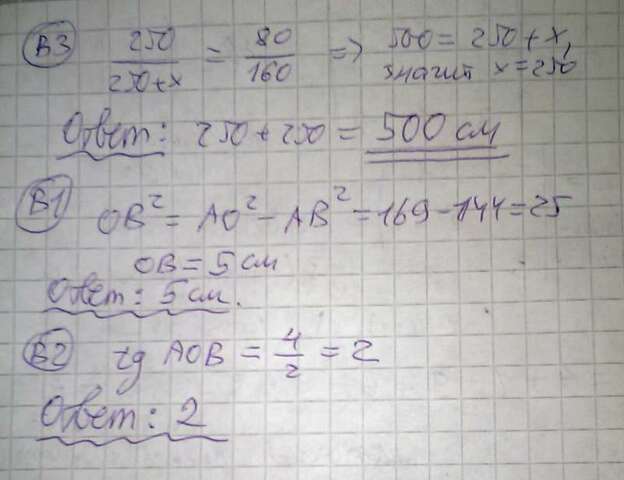 В3 250/(250+x) = 80/160 => 500 = 250 + x,
значит x = 250
Ответ: 250 + 250 = 500 см
В1 OB² = AO² - AB² = 169 - 144 = 25
OB = 5 см
Ответ: 5 см.
В2 tg AOB = 4/2 = 2
Ответ: 2